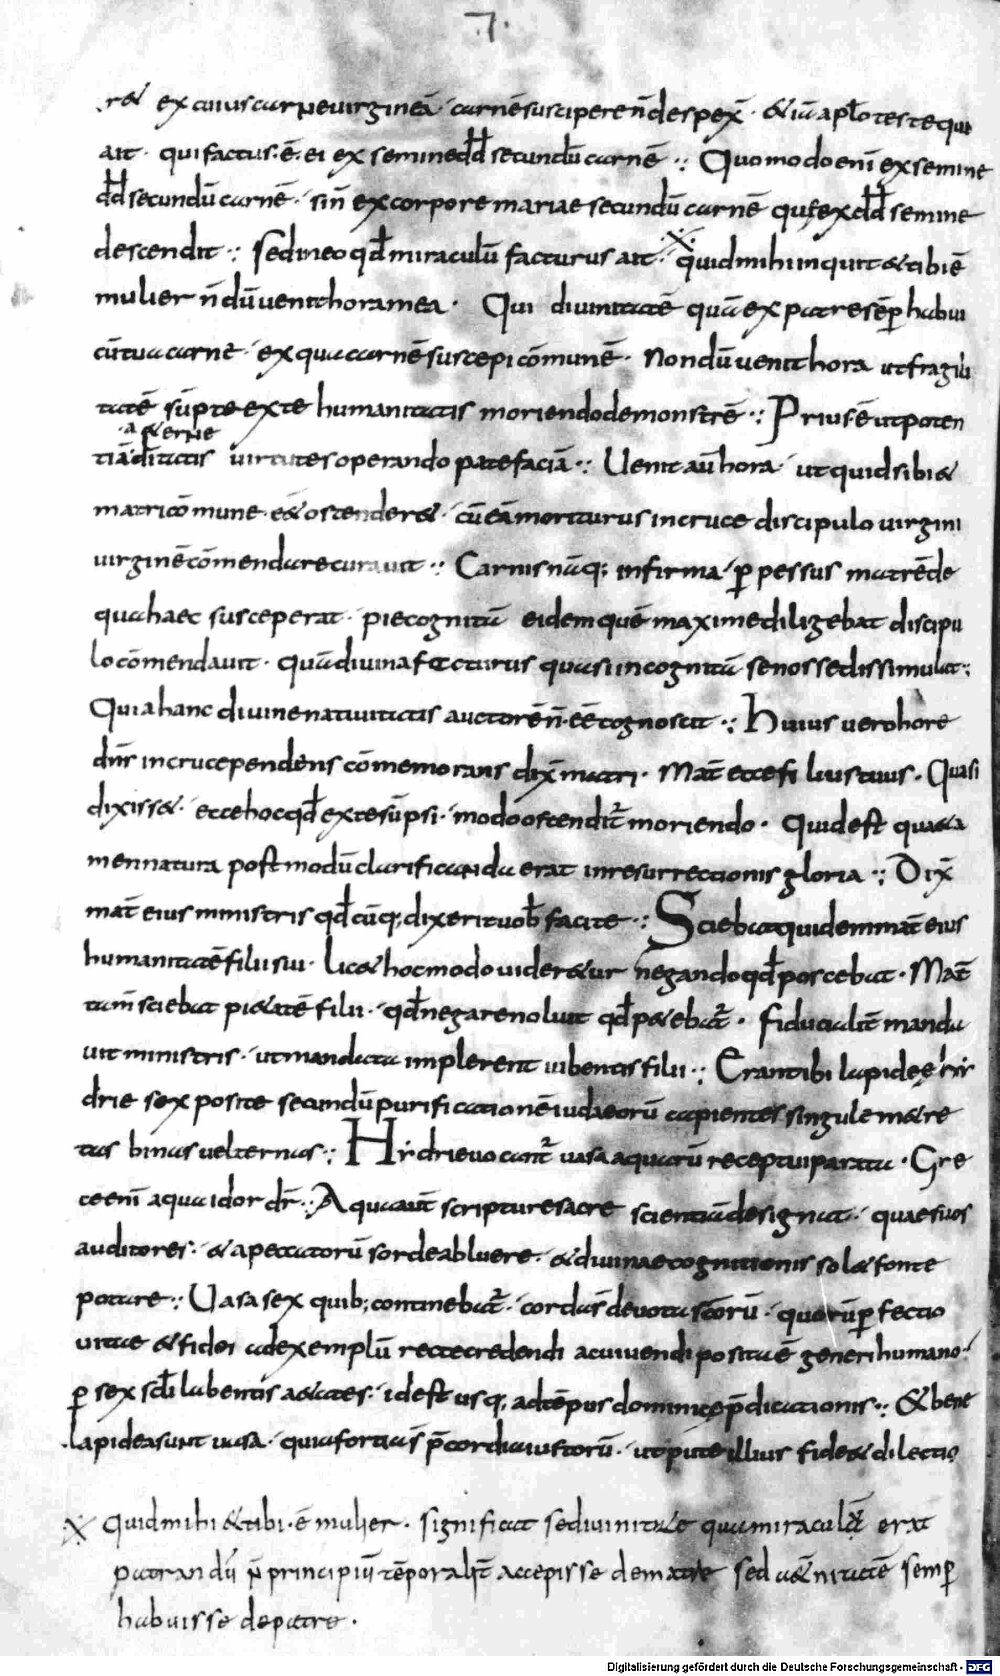 .7.
r& ex cuius carne virgineā carnē suscipere n̄ despex̄ · & iū aplo teste qui
ait · qui factus · ē · ei ex semine dd̄ secundū carnē :· Quomodo enī ex semine
dd̄ secundū carnē · sin̄ ex corpore mariae secundū carnē quę ex dd̄ semine
descendit :· sed in eo qd̄ miraculū facturus ait · quid mihi inquit & tibi ē
mulier n̄dū venit hora mea · Qui divinitatē quā ex patre sēp habui
cū tua carne · ex qua carnē suscepi cōmunē · Nondū venit hora ut fragili
tatē sūpte ex te humanitatis moriendo demonstrē :· Prius · ē ut poten
a &erne
tiā ditatis virtutes operando patefaciā :· Uenit aū hora · ut quid sibi &
matri cōmune · ē & ostender& · cū eā moriturus in cruce discipulo virgini
virginē cōmendare curavit :· Carnis nāq; infirma p̱pessus matrē de
qua haec susceperat · pie cognitū eidem quē maxime diligebat discipu
lo cōmendavit · quā divina facturus quasi incognitā se nosse dissimulat :·
Quia hanc divine nativitatis auctorē n̄ · ēē cognoscit :· Huius vero hore
dn̄s in cruce pendens cōmemorans dix̄ matri · Mat̄ ecce filius tuus · Quasi
dixiss& · ecce hoc qd̄ ex te sūpsi · modo ostendit̄ moriendo · quid est qua &a
men natura post modū clarificanda erat in resurrectionis gloria :· Dix̄
mat̄ eius ministris qd̄cūq; dixerit vob̄ facite :· Sciebat quidem mat̄ eius
humanitatē filii sui · lic& hoc modo vider&ur negando qd̄ poscebat · Mat̄
tam̄ sciebat pi&atē filii · qd̄ negare noluit qd̄ p&ebat̄ · fiducialit̄ manda
vit ministris · ut mandata implerent iubentis filii :· Erant ibi lapideę hy
drie sex posite secundū purificationē iudaeorū capientes singule m&re
tas binas vel ternas :· Hydrie vocant̄ vasa aquarū receptui parata · Gre
ce enī aqua idor dr̄ :· Aqua aut̄ scripture sacre scientiā designat · quae suos
auditores · & a peccatorū sorde abluere · & divinae cognitionis sol& fonte
potare :· Uasa sex quib; continebat̄ · corda s̄ devota scōrū · quorū p̱fectio
vitae & fidei ad exemplū recte credendi ac vivendi posita ē generi humano
p̱ sex scl̄i labentis a&ates · id est usq; ad tēpus dominicę p̄dicationis :· & bene
lapidea sunt vasa · quia fortia s̄ p̄cordia iustorū · ut pute illius fide & dilectio
quid mihi & tibi · ē mulier · significat se divinitate qua miraculū erat
patrandū n̄ principiū tēporalit̄ accepisse de matre sed a&ernitatē semp̱
habuisse de patre ·
Digitalisierung gefördert durch die Deutsche Forschungsgemeinschaft - DFG